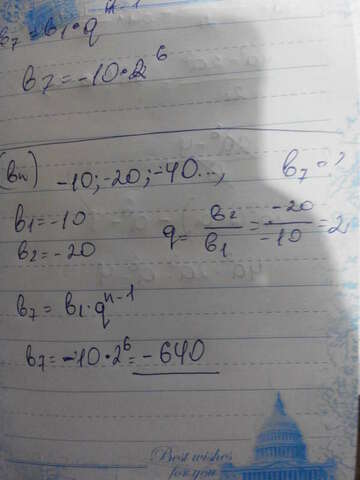 в₇ = в₁ · q^n-1
в₇ = -10 · 2⁶
(вn) -10; -20; -40..., в₇ = ?
в₁ = -10
в₂ = -20
q = в₂/в₁ = -20/-10 = 2
в₇ = в₁ · q^n-1
в₇ = -10 · 2⁶ = -640
Best wishes
for you